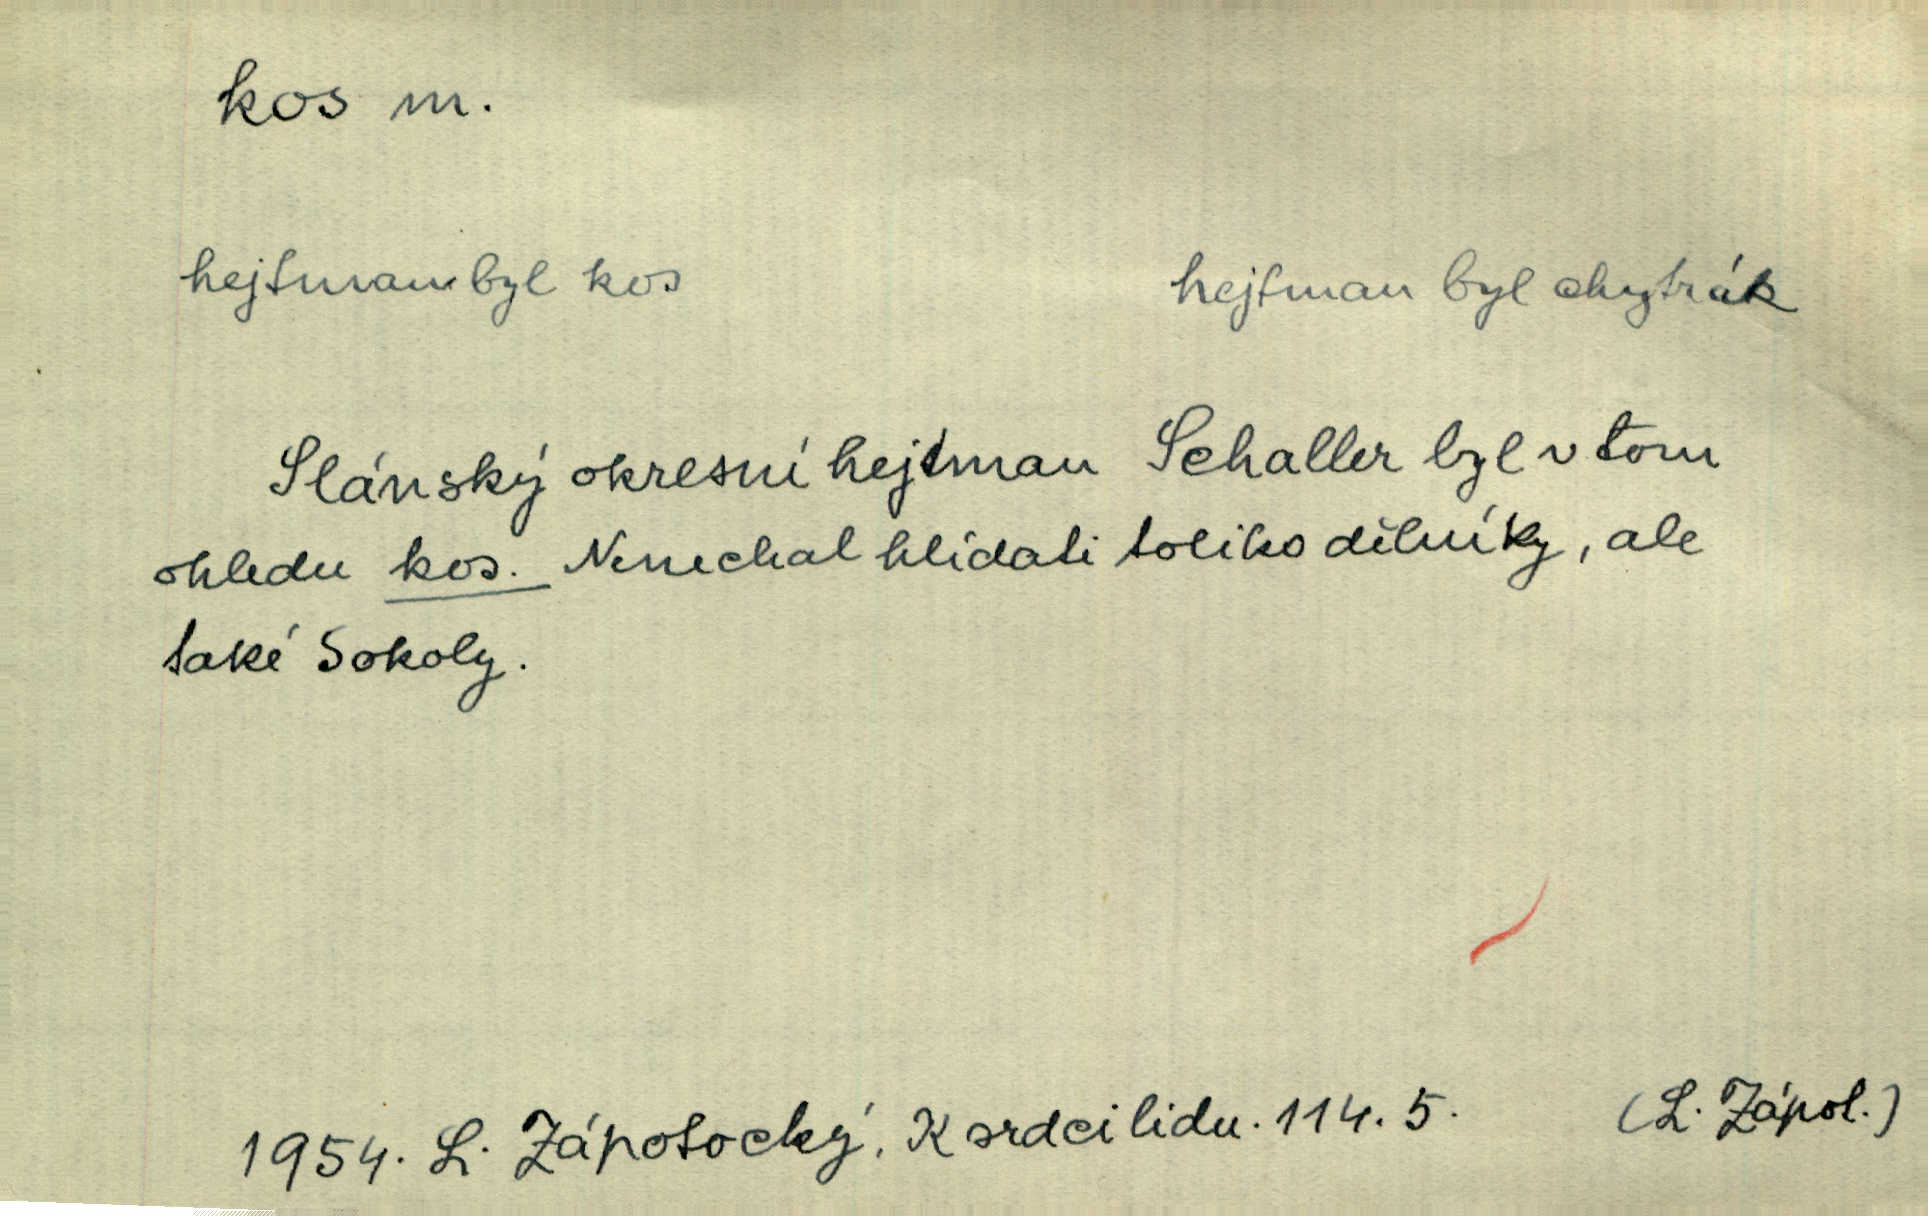 kos m.
hejtman byl kos
hejtman byl chytrák
Slánský okresní hejtman Schaller byl v tom
ohledu kos. Nenechal hlídati toliko dělníky, ale
také Sokoly.
1954. L. Zápotocký, K srdci lidu. 114. 5.
(L. Zápot.)